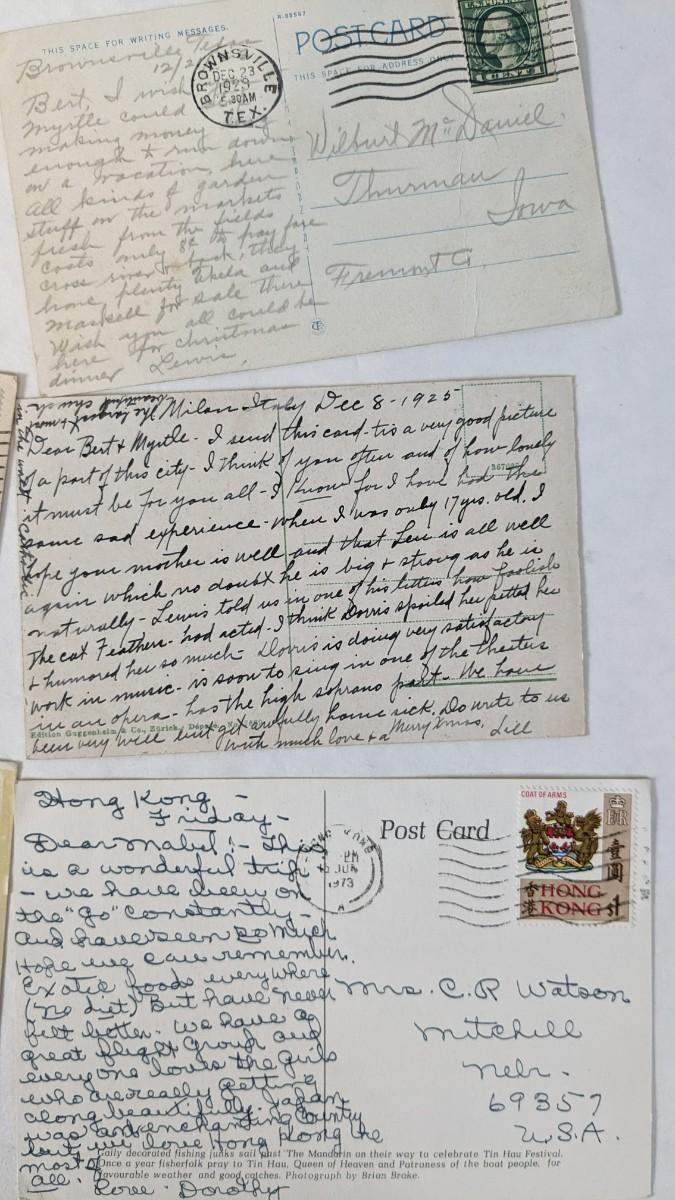 THIS SPACE FOR WRITING MESSAGES.
Brownsville Texas
12/2
Bert, I wish
Myrtle could
making money
enough & run down
on a vacation, here
All kinds of garden
stuff on the markets
fresh from the fields
costs only 8¢ to pay fare
cross river & back, they
have plenty and
for sale there
Wish you all could be
here for Christmas
dinner Lewis,
BROWNSVILLE
DEC 23
1929
5-30AM
TEX.
POST CARD
THIS SPACE FOR ADDRESS ONLY
U.S. POSTAGE
Wilburt McDaniel.
Thurman
Iowa
Fremont Co.
Milan - Italy Dec 8 - 1925
Dear Bert & Myrtle - I send this card - tis a very good picture
of a part of this city - I think of you often and of how lonely
it must be for you all - I know for I have had the
same sad experience - when I was only 17 yrs. old. I
hope your mother is well and that Leu is all well
again which no doubt he is big & strong as he is
naturally - Lewis told us in one of his letters how foolish
The cat Feathers - had acted - I think Dorris spoiled her petted her
& humored her so much - Dorris is doing very satisfactory
work in music - is soon to sing in one of the theaters
in an opera - has the high soprano part - We have
been very well but get awfully home sick. Do write to us
with much love & a Merry Xmas, Lill
The largest & most
beautiful church
in the world.
Edition Guggenheim & Co., Zürich,
Hong Kong -
Friday -
Dear Mabel :- This
is a wonderful trip
- we have been on
the "go" constantly -
and have seen so much
Hope we can remember.
Exotic foods everywhere
(no diet) But have never
felt better. We have a
great flight group and
everyone loves the girls
who are really getting
along beautifully. Japan
was an enchanting country
but we love Hong Kong the
most of
all.
Love - Dorothy
Post Card
HONG KONG
PM
JUN
1973
COAT OF ARMS
ER
壹
圓
香
港
HONG
KONG $1
Mrs. C. R Watson
Mitchell
Nebr.
69357
U.S.A.
Gaily decorated fishing junks sail past The Mandarin on their way to celebrate Tin Hau Festival.
Once a year fisherfolk pray to Tin Hau, Queen of Heaven and Patroness of the boat people, for
favourable weather and good catches. Photograph by Brian Brake.